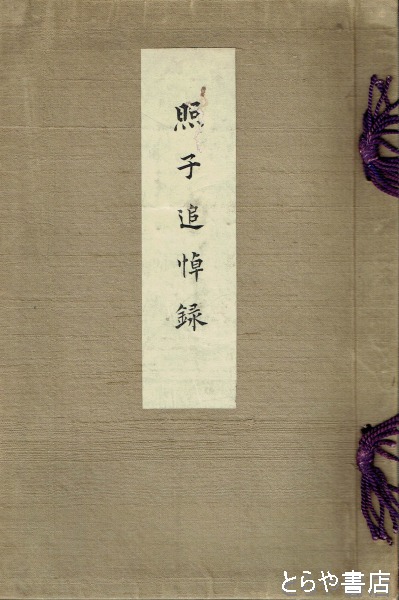 照子追悼録
とらや書店